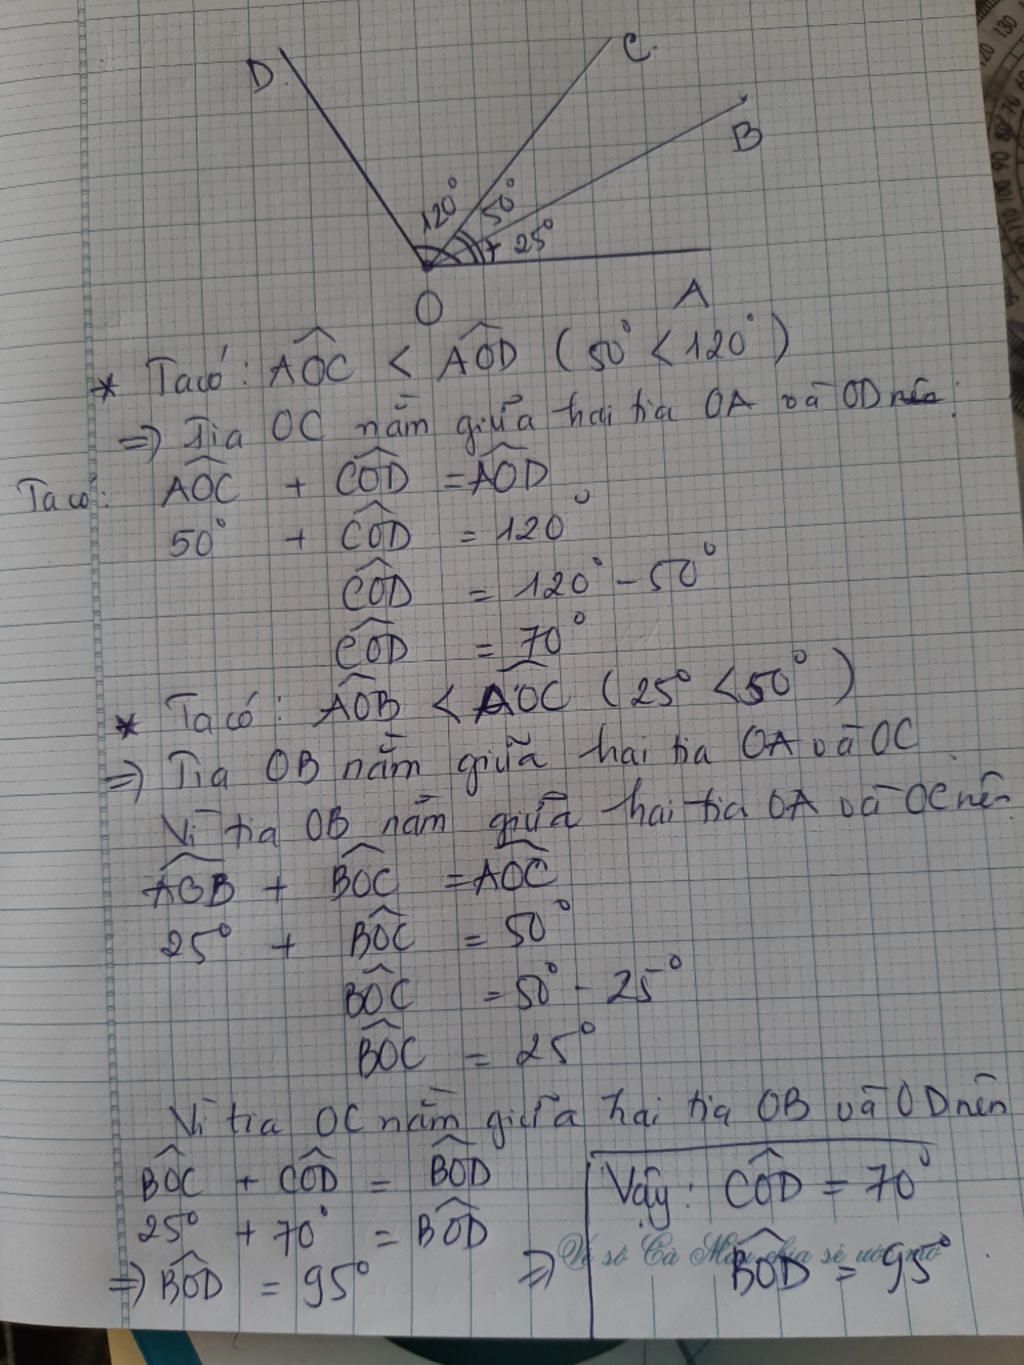 D
C
B
120° 50°
25°
O
A
* Ta có: AÔC < AÔD (50° < 120°)
=> Tia OC nằm giữa hai tia OA và OD
Ta có: AÔC + CÔD = AÔD
50° + CÔD = 120°
CÔD = 120° - 50°
CÔD = 70°
* Ta có: AÔB < AÔC (25° < 50°)
=> Tia OB nằm giữa hai tia OA và OC
Vì tia OB nằm giữa hai tia OA và OC nên
AÔB + BÔC = AÔC
25° + BÔC = 50°
BÔC = 50° - 25°
BÔC = 25°
Vì tia OC nằm giữa hai tia OB và OD nên
BÔC + CÔD = BÔD
25° + 70° = BÔD
=> BÔD = 95°
=> Vậy: CÔD = 70°
BÔD = 95°